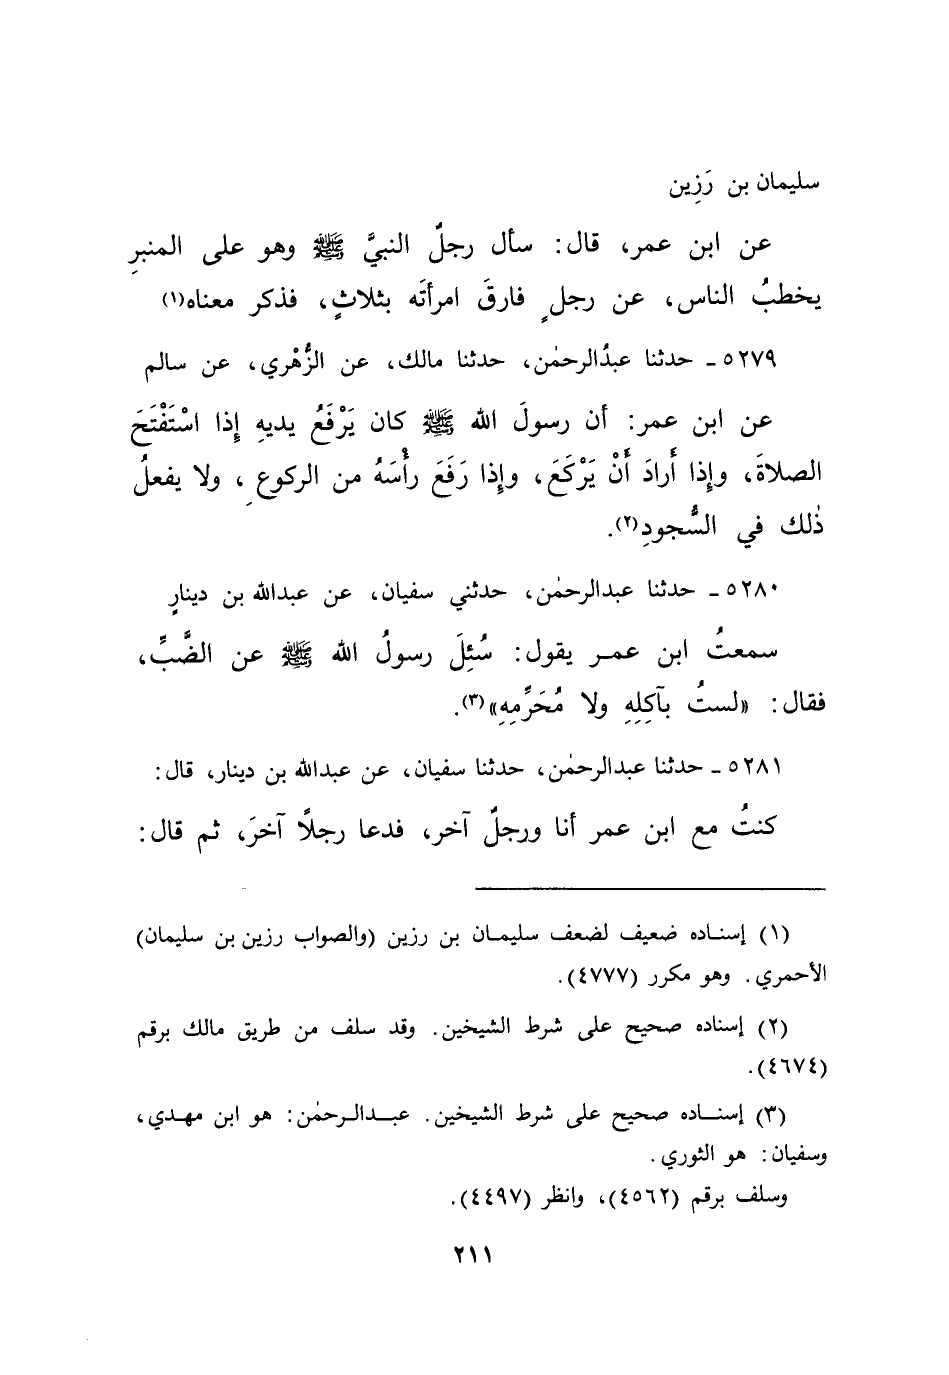 سليمان بن رَزِين
عن ابن عمر، قال: سأل رجلٌ النبيَّ ﷺ وهو على المنبرِ
يخطبُ الناس، عن رجلٍ فارقَ امرأتَه بثلاثٍ، فذكر معناه(١)
٥٢٧٩ ـ حدثنا عبدُالرحمٰن، حدثنا مالك، عن الزُّهْري، عن سالم
عن ابن عمر: أن رسولَ الله ﷺ كان يَرْفَعُ يديهِ إِذا اسْتَفْتَحَ
الصلاةَ، وإِذا أَرادَ أَنْ يَرْكَعَ، وإِذا رَفَعَ رأْسَهُ من الركوعِ، ولا يفعلُ
ذٰلك في السُّجودِ(٢).
٥٢٨٠ ـ حدثنا عبدالرحمٰن، حدثني سفيان، عن عبدالله بن دينارٍ
سمعتُ ابن عمر يقول: سُئِلَ رسولُ الله ﷺ عن الضَّبِّ،
فقال: «لستُ بآكِلِهِ ولا مُحَرِّمِهِ»(٣).
٥٢٨١ ـ حدثنا عبدالرحمٰن، حدثنا سفيان، عن عبدالله بن دينار، قال:
كنتُ مع ابن عمر أنا ورجلٌ آخر، فدعا رجلًا آخرَ، ثم قال:
(١) إسناده ضعيف لضعف سليمان بن رزين (والصواب رزين بن سليمان)
الأحمري. وهو مكرر (٤٧٧٧).
(٢) إسناده صحيح على شرط الشيخين. وقد سلف من طريق مالك برقم
(٤٦٧٤).
(٣) إسناده صحيح على شرط الشيخين. عبدالرحمٰن: هو ابن مهدي،
وسفيان: هو الثوري.
وسلف برقم (٤٥٦٢)، وانظر (٤٤٩٧).
٢١١